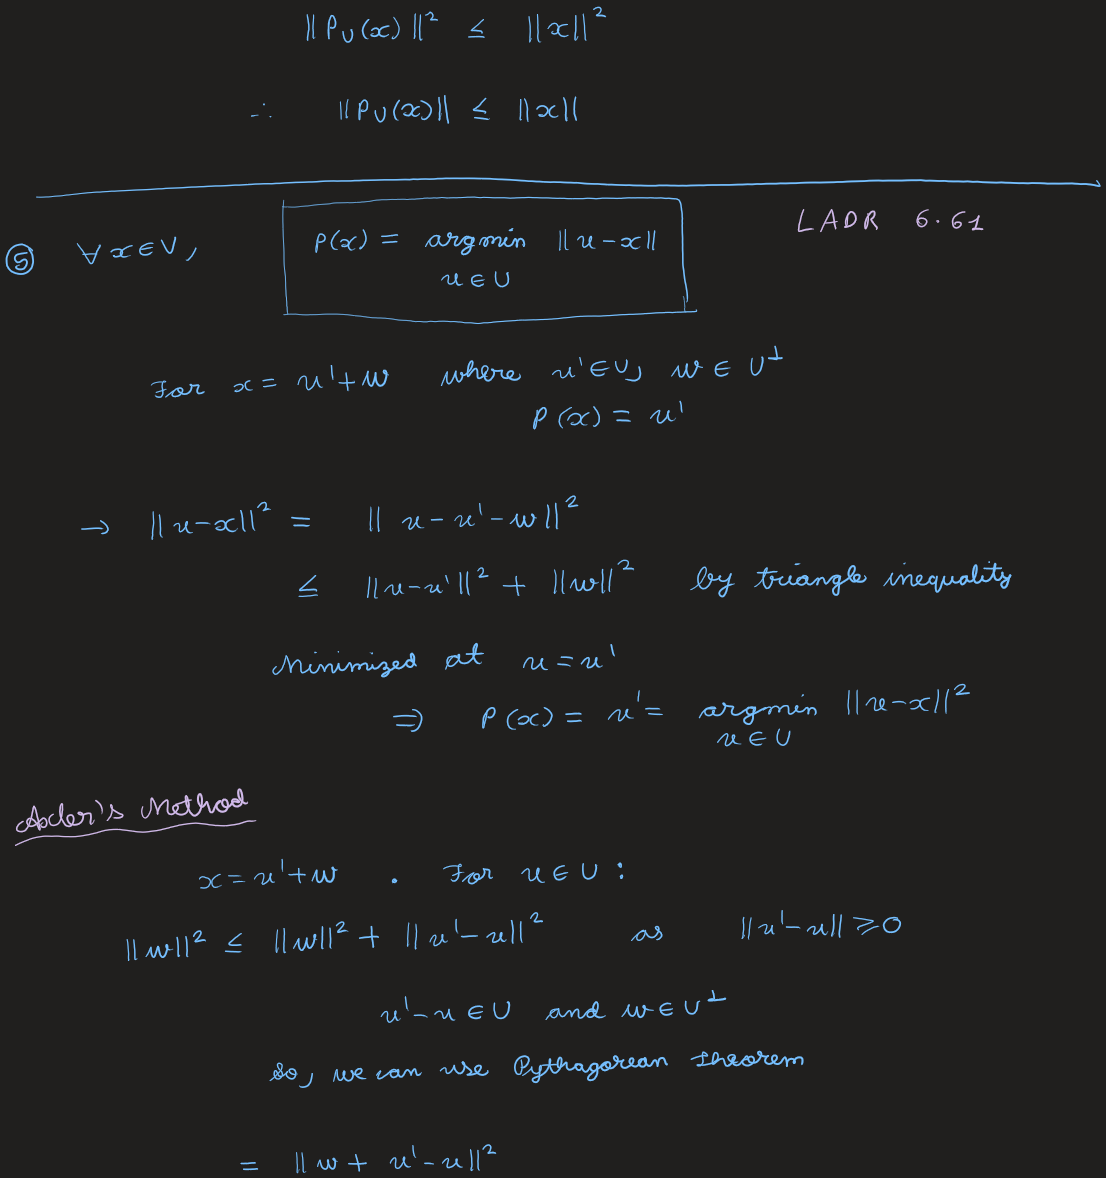 ||P_U(x)||² ≤ ||x||²
∴ ||P_U(x)|| ≤ ||x||
LADR 6.61
⑤ ∀ x ∈ V, P(x) = argmin ||u - x||
u ∈ U
For x = u' + w where u' ∈ U, w ∈ U^⊥
P(x) = u'
→ ||u-x||² = ||u - u' - w||²
≤ ||u-u'||² + ||w||² by triangle inequality
Minimized at u = u'
⇒ P(x) = u' = argmin ||u-x||²
u ∈ U
Axler's Method
x = u' + w . For u ∈ U :
||w||² ≤ ||w||² + ||u' - u||² as ||u' - u|| ⩾ 0
u' - u ∈ U and w ∈ U^⊥
so, we can use Pythagorean Theorem
= ||w + u' - u||²